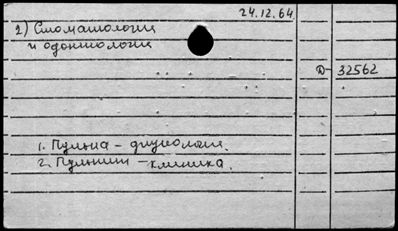 24.12.64
2) Стоматология
и одонтология
D-32562
1. Пульпа - физиология.
2. Пульпит - клиника.